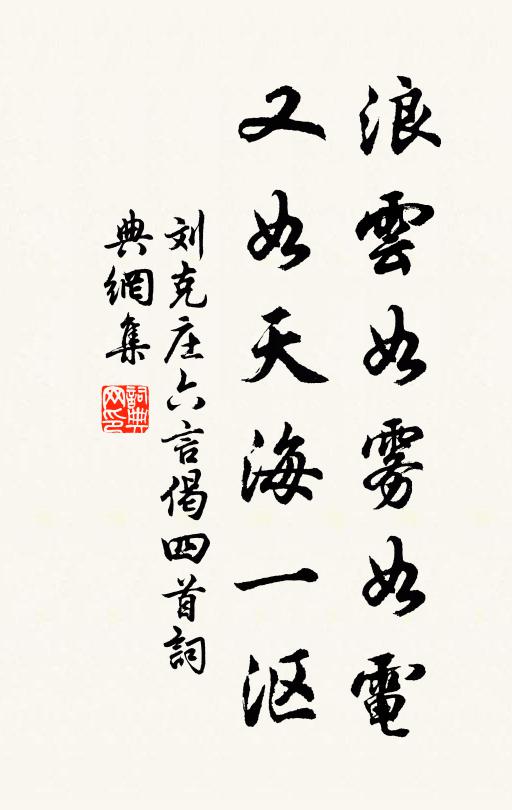 浪雲如雾如電
又如天海一沤
刘克庄六言偈四首詞
典網集
詞典網印